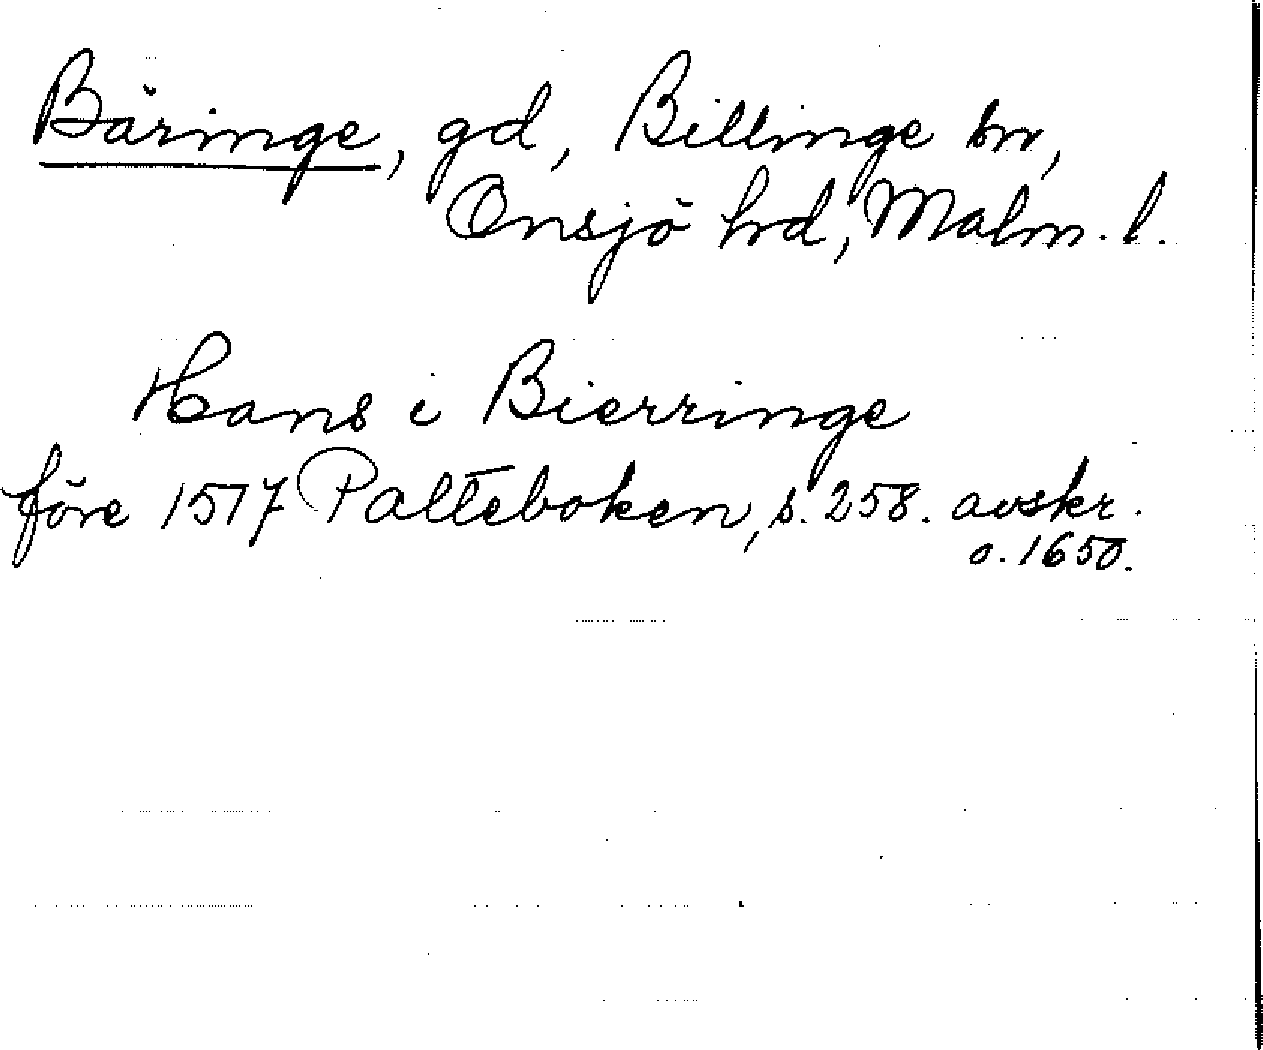 Bäringe, gd, Billinge sn,
Onsjö hrd, Malm. l.
Hans i Bierringe
före 1517 Palteboken, s. 258. avskr.
o. 1650.